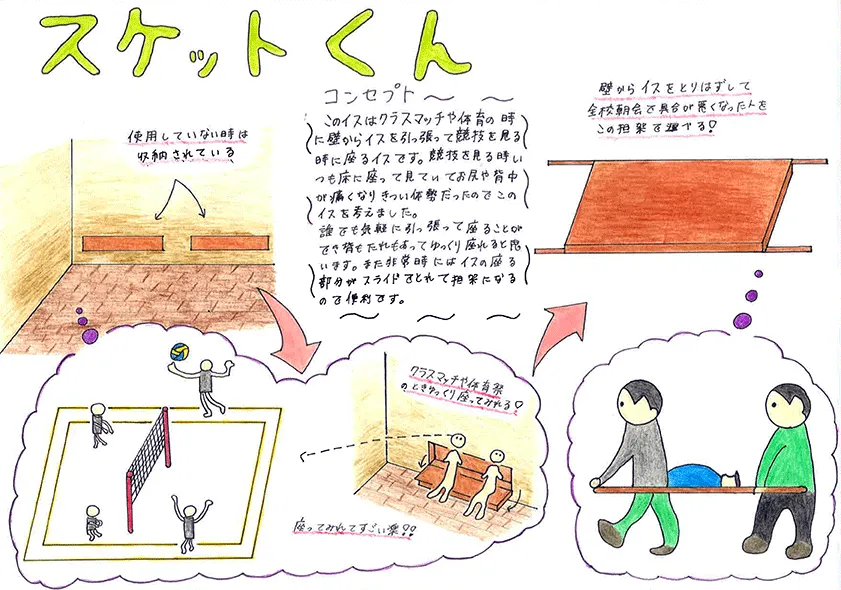 スケットくん
コンセプト〜〜〜
このイスはクラスマッチや体育の時
に壁からイスを引っ張って競技を見る
時に座るイスです。競技を見る時い
つも床に座って見ていてお尻や背中
が痛くなりきつい体勢だったのでこの
イスを考えました。
誰でも気軽に引っ張って座ることが
でき背もたれもあってゆっくり座れると思
います。また非常時にはイスの座る
部分がスライドでとれて担架になる
ので便利です。
使用していない時は
収納されている
壁からイスをとりはずして
全校朝会で具合が悪くなった人を
この担架で運べる!
クラスマッチや体育祭
のときゆっくり座ってみれる♡
座ってみれてすごい楽!!